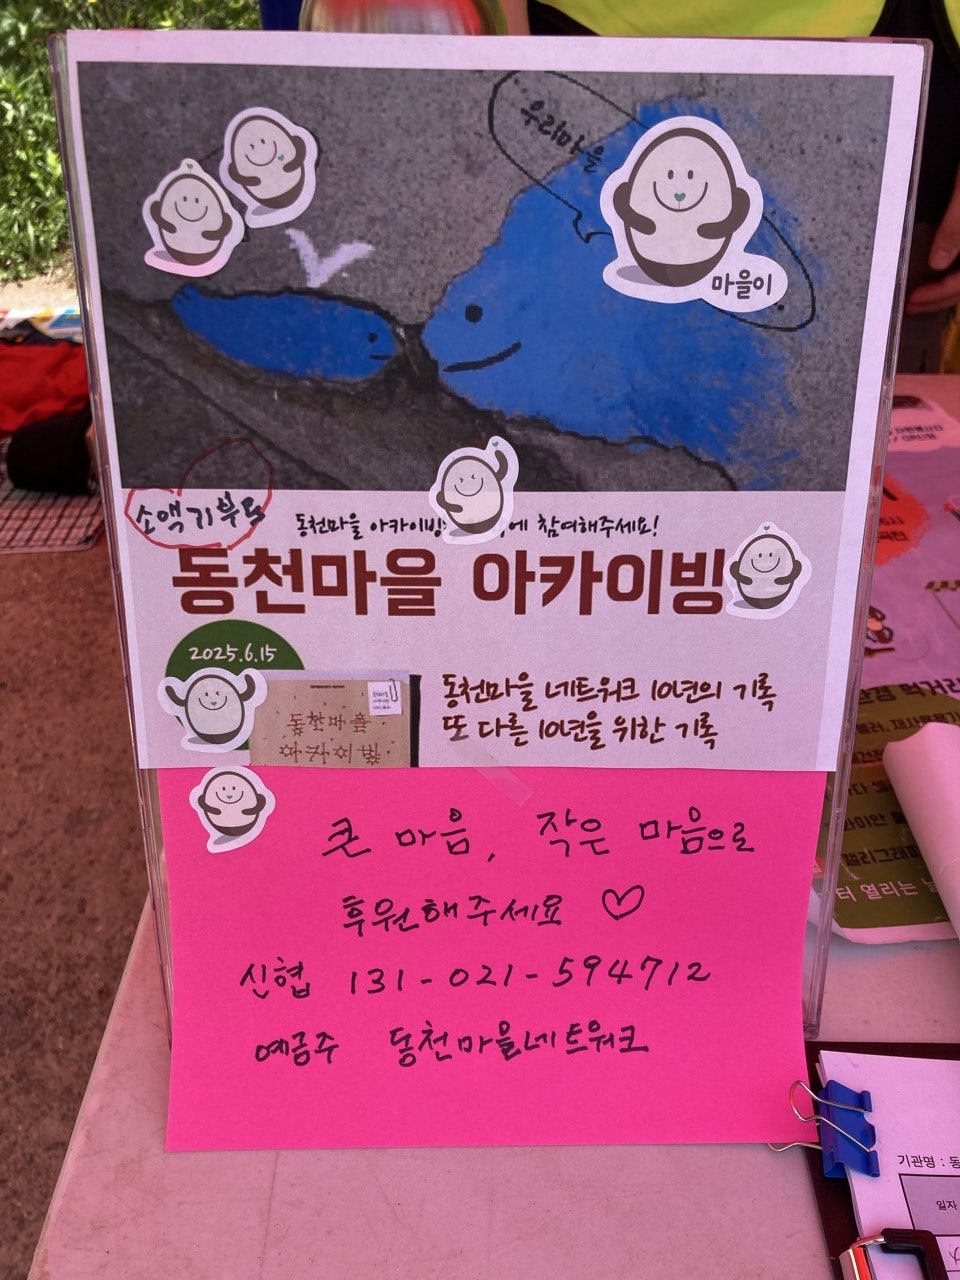 우리마을
마을이
소액기부도
동천마을 아카이빙 에 참여해주세요!
동천마을 아카이빙
2025.6.15
동천마을
아카이빙
동천마을 네트워크 10년의 기록
또 다른 10년을 위한 기록
큰 마음, 작은 마음으로
후원해주세요 ♡
신협 131-021-594712
예금주 동천마을네트워크
캘리그래피
터 열리는
기관명 : 동
일자